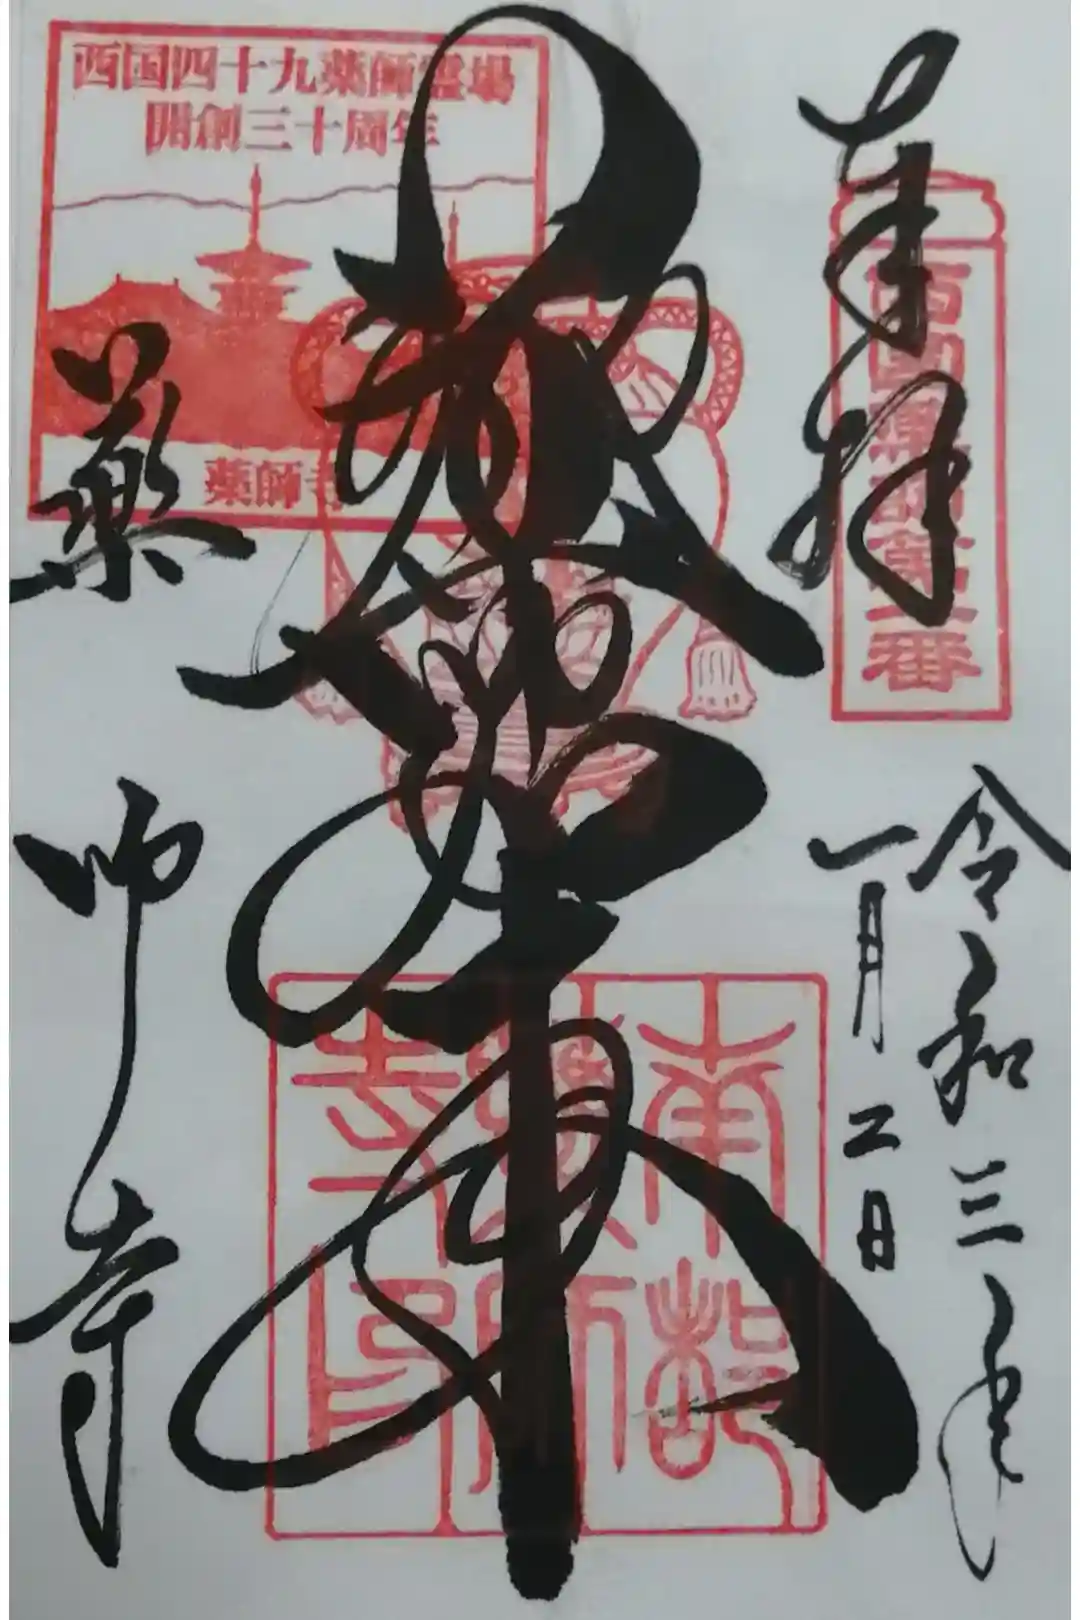 奉拝
西国薬師第一番
令和三年
一月二日
薬師如来
南都
薬師
寺印
西国四十九薬師霊場
開創三十周年
薬師寺
薬師寺